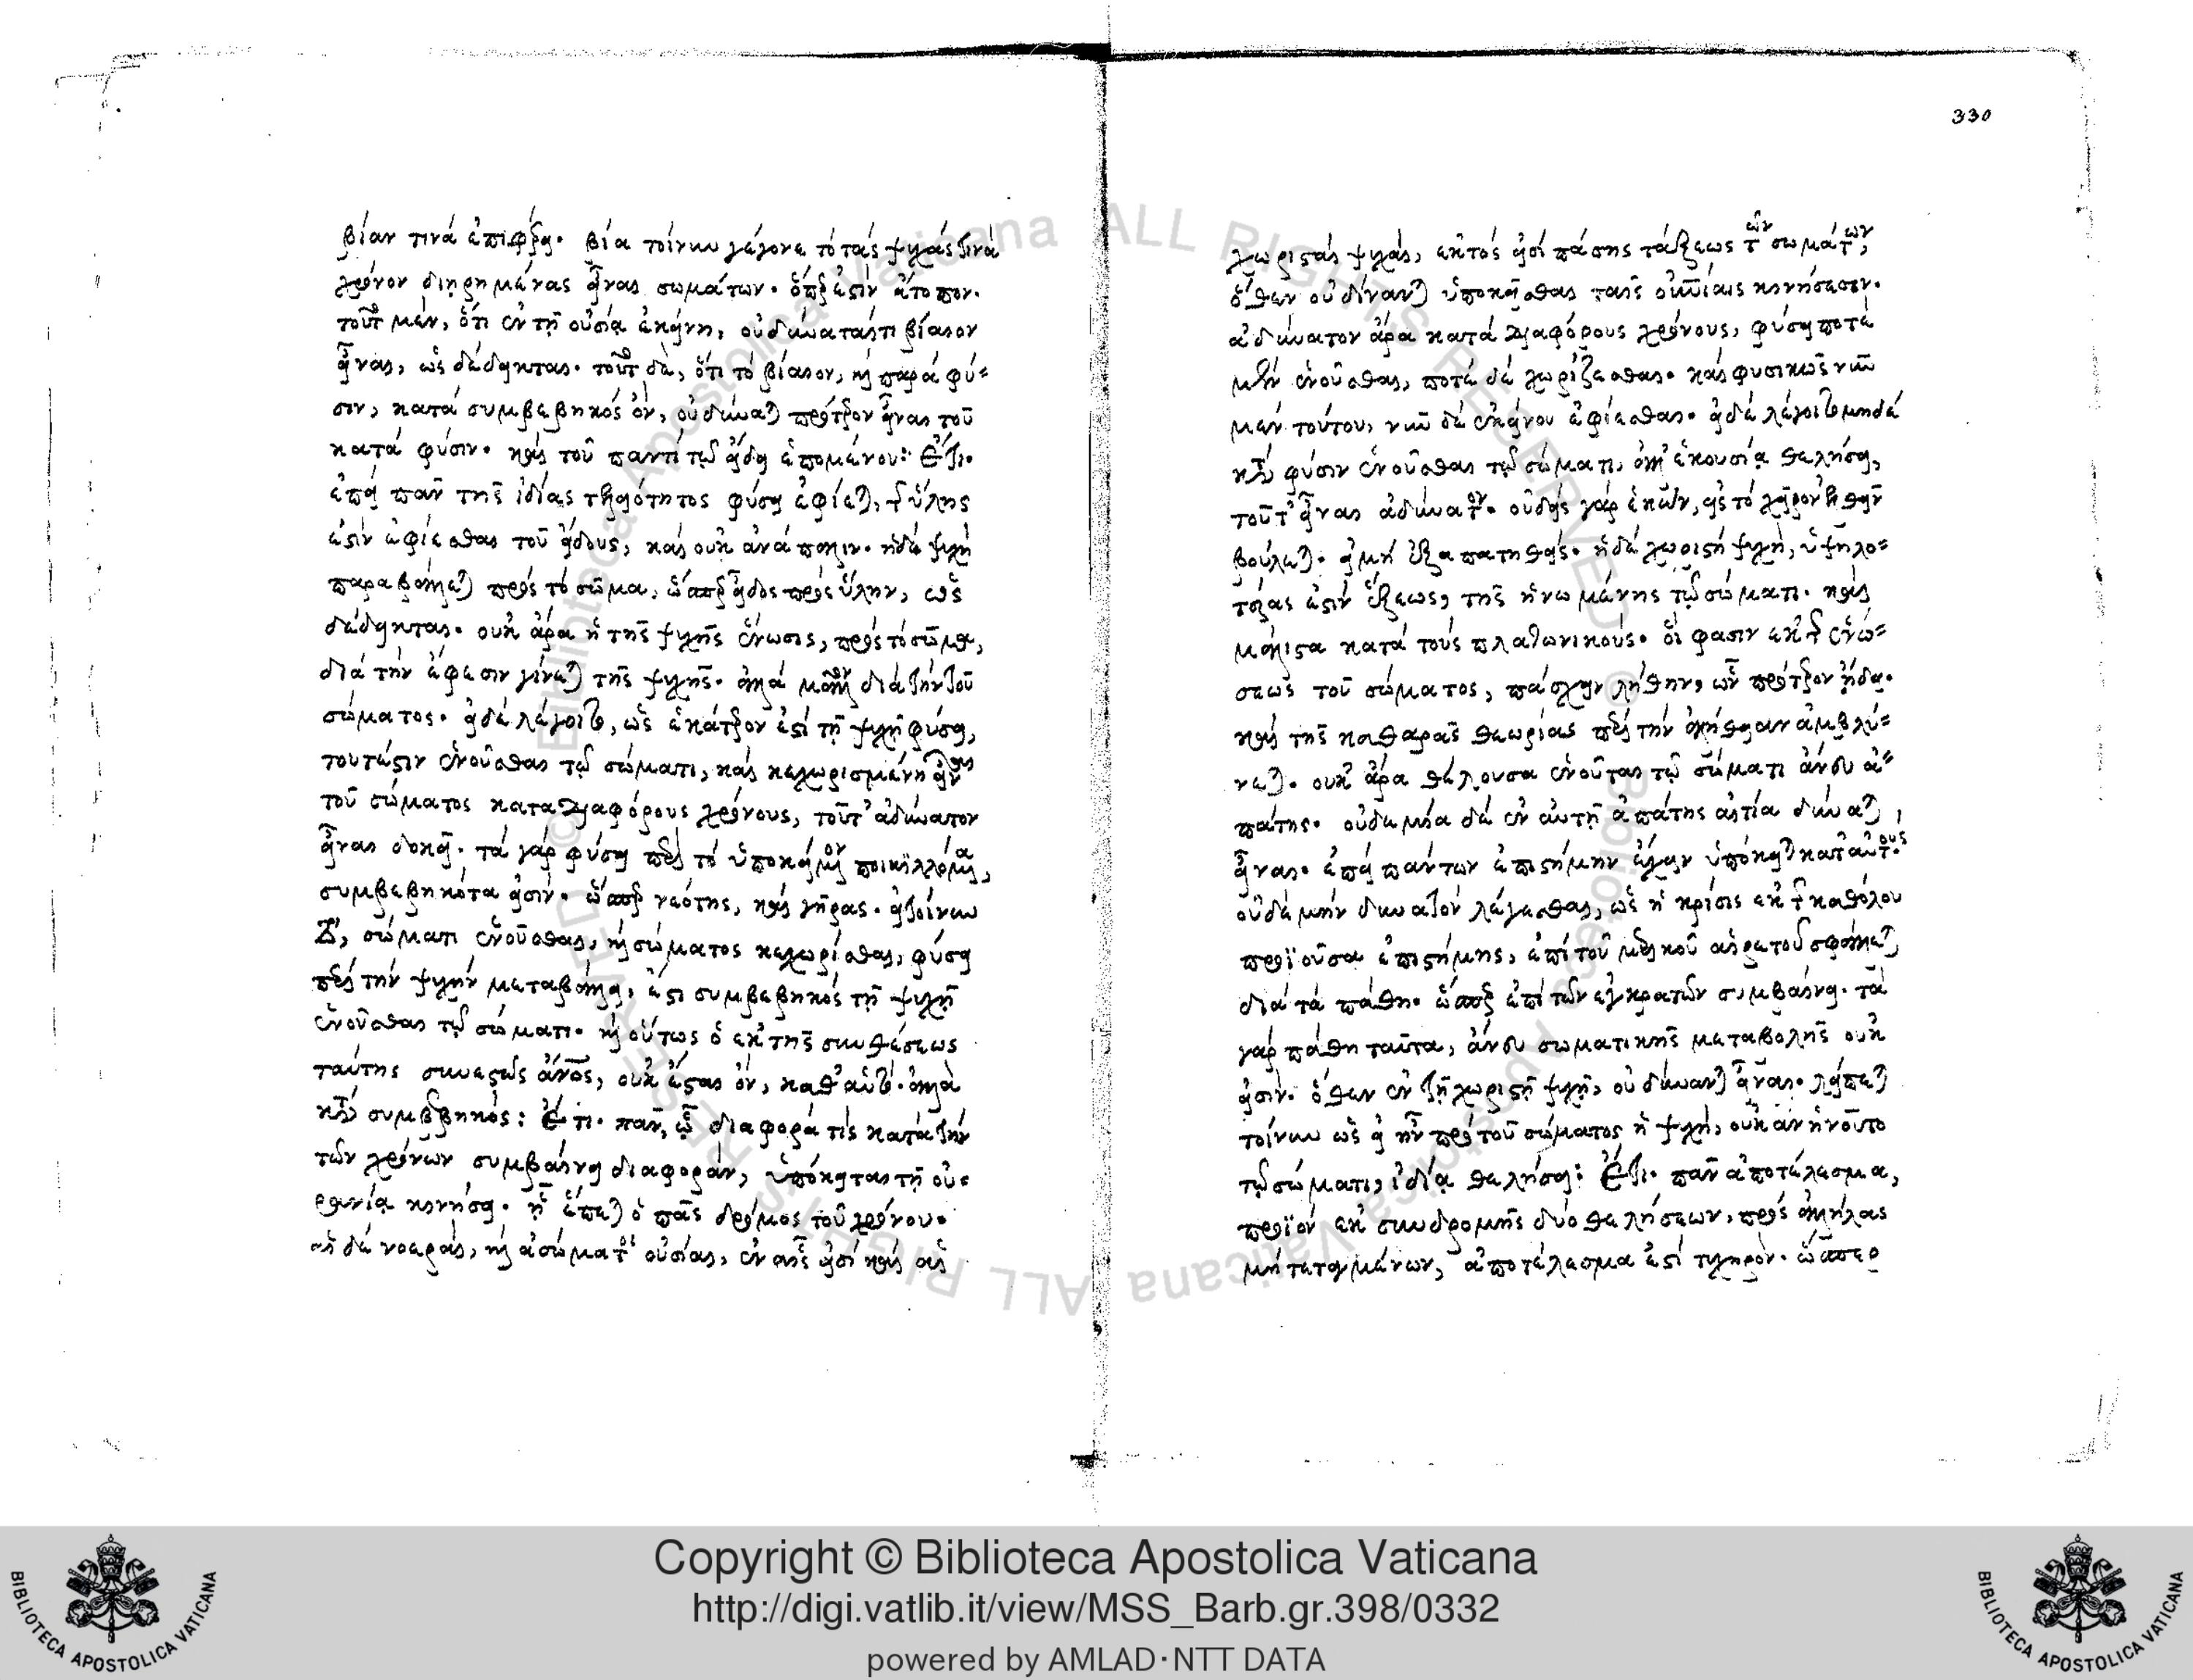 βίαν τινά ἐπιφέρει. βία τοίνυν γέγονε τό τάς ψυχάς τινά
χρόνον διῃρημένας εἶναι σωμάτων. ὅπερ ἐστίν ἄτοπον.
τοῦτο μέν, ὅτι ἐν τῇ οὐσίᾳ ἐκείνῃ, οὐ δύναταί τι βίαιον
εἶναι, ὡς δέδεικται. τοῦτο δέ, ὅτι τό βίαιον, καί παρά φύ-
σιν, κατά συμβεβηκός ὄν, οὐ δύναται πρότερον εἶναι τοῦ
κατά φύσιν. καί τοῦ παντί τῷ εἴδει ἑπομένου: Ἔτι.
ἐπεί πᾶν τῆς ἰδίας τελειότητος φύσει ἐφίεται, τῆς ὕλης
ἐστίν ἐφίεσθαι τοῦ εἴδους, καί οὐκ ἀνάπαλιν. ἡ δέ ψυχή
παραβάλλεται πρός τό σῶμα, ὥσπερ εἶδος πρός ὕλην, ὡς
δέδεικται. οὐκ ἄρα ἡ τῆς ψυχῆς ἕνωσις, πρός τό σῶμα,
διά τήν ἔφεσιν γίνεται τῆς ψυχῆς. ἀλλά μᾶλλον διά τήν τοῦ
σώματος. εἰ δέ λέγοιτο, ὡς ἑκάτερον ἐστί τῇ ψυχῇ φύσει,
τουτέστιν ἑνοῦσθαι τῷ σώματι, καί κεχωρισμένη εἶναι
τοῦ σώματος κατα διαφόρους χρόνους, τοῦτ' ἀδύνατον
εἶναι δοκεῖ. τά γάρ φύσει περί τό ὑποκείμενον ποικιλλόμενα,
συμβεβηκότα εἰσίν. ὥσπερ νεότης, καί γῆρας. εἰ τοίνυν
τό, σώματι ἑνοῦσθαι, καί σώματος κεχωρίσθαι, φύσει
περί τήν ψυχήν μεταβάλλει, ἔσται συμβεβηκός τῇ ψυχῇ
ἑνοῦσθαι τῷ σώματι. καί οὕτως ὁ ἐκ τῆς συνθέσεως
ταύτης συνεστώς ἄνος, οὐκ ἔσται ὄν, καθ' αὑτό. ἀλλά
κατά συμβεβηκός: Ἔτι. πᾶν, ᾧ διαφορά τίς κατά τήν
τῶν χρόνων συμβαίνει διαφοράν, ὑπόκειται τῇ οὐ-
ρανίᾳ κινήσει. ᾗ ἕπεται ὁ πᾶς δρόμος τοῦ χρόνου.
αἱ δέ νοεραί, καί ἀσώματοι οὐσίαι, ἐν αἷς εἰσί καί αἱ
330
χωρισταί ψυχαί, ἐκτός εἰσί πάσης τάξεως τῶν σωμάτων,
ὅθεν οὐ δύνανται ὑποκεῖσθαι ταῖς οὐρανίαις κινήσεσιν.
ἀδύνατον ἄρα κατά διαφόρους χρόνους, φύσει ποτέ
μέν ἑνοῦσθαι, ποτέ δέ χωρίζεσθαι. καί φυσικῶς νῦν
μέν τούτου, νῦν δέ ἐκείνου ἐφίεσθαι. εἰ δέ λέγοιτο μηδέ
κατά φύσιν ἑνοῦσθαι τῷ σώματι, ἀλλ' ἑκουσίᾳ θελήσει,
τοῦτ' εἶναι ἀδύνατον. οὐδείς γάρ ἑκών, εἰς τό χεῖρον ἐλθεῖν
βούλεται. εἰ μή ἐξαπατηθείς. ἡ δέ χωριστή ψυχή, ὑψηλο-
τέρας ἐστίν ἕξεως, τῆς ἡνωμένης τῷ σώματι. καί
μάλιστα κατά τούς πλατωνικούς. οἵ φασιν ἐκ τῆς ἑνώ-
σεως τοῦ σώματος, πάσχειν λήθην, ὧν πρότερον ᾔδει.
καί τῆς καθαρᾶς θεωρίας περί τήν ἀλήθειαν ἀμβλύ-
νεται. οὐκ ἄρα θέλουσα ἑνοῦται τῷ σώματι ἄνευ ἀ-
πάτης. οὐδεμία δέ ἐν αὐτῇ ἀπάτης αἰτία δύναται
εἶναι. ἐπεί πάντων ἐπιστήμην ἔχειν ὑπόκειται κατ' αὐτούς.
οὐδέ μήν δυνατόν λέγεσθαι, ὡς ἡ κρίσις ἐκ τῆς καθόλου
προϊοῦσα ἐπιστήμης, ἐπί τοῦ μερικοῦ αἱρετοῦ σφάλλεται
διά τά πάθη. ὥσπερ ἐπί τῶν ἀκρατῶν συμβαίνει. τά
γάρ πάθη ταῦτα, ἄνευ σωματικῆς μεταβολῆς οὐκ
εἰσίν. ὅθεν ἐν τῇ χωριστῇ ψυχῇ, οὐ δύνανται εἶναι. λείπεται
τοίνυν ὡς εἰ ἦν πρό τοῦ σώματος ἡ ψυχή, οὐκ ἄν ἡνοῦτο
τῷ σώματι, ἰδίᾳ θελήσει: Ἔτι. πᾶν ἀποτέλεσμα,
προϊόν ἐκ συνδρομῆς δύο θελήσεων, πρός ἀλλήλας
μή τεταγμένων, ἀποτέλεσμα ἐστί τυχηρόν. ὥσπερ
Copyright © Biblioteca Apostolica Vaticana
http://digi.vatlib.it/view/MSS_Barb.gr.398/0332
powered by AMLAD·NTT DATA